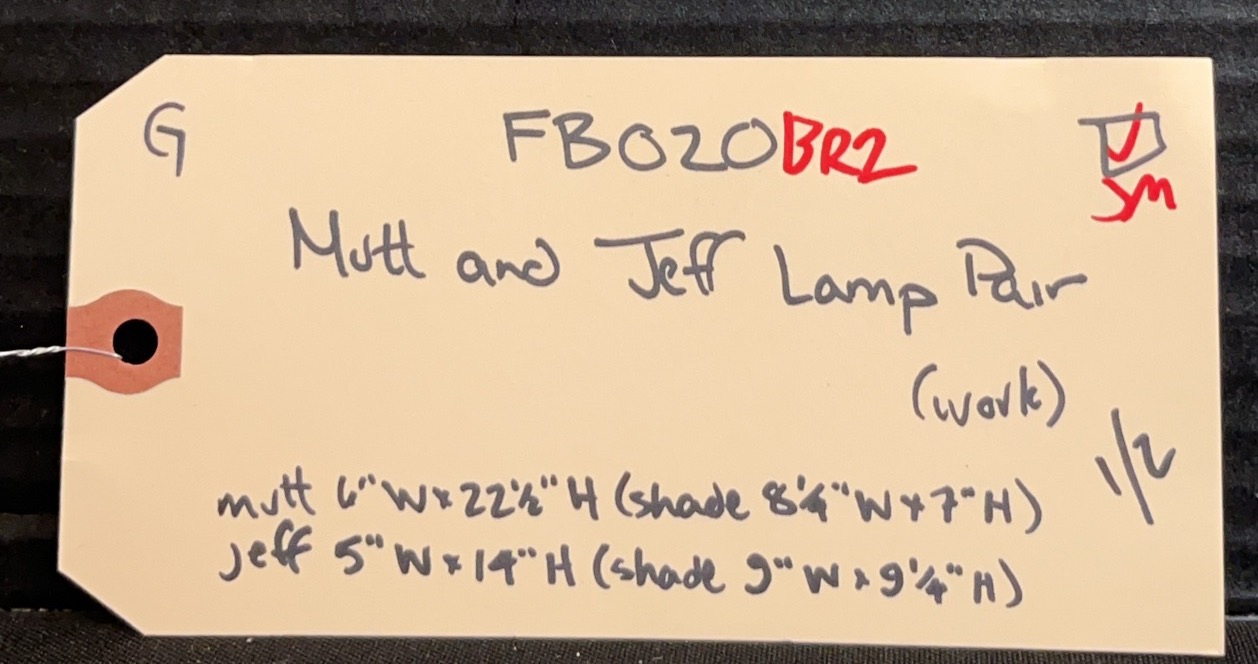 G FB020BR2
JM
Mutt and Jeff Lamp Pair
(work)
1/2
mutt 6" W x 22½" H (shade 8¼" W x 7" H)
jeff 5" W x 14" H (shade 9" W x 9¼" H)